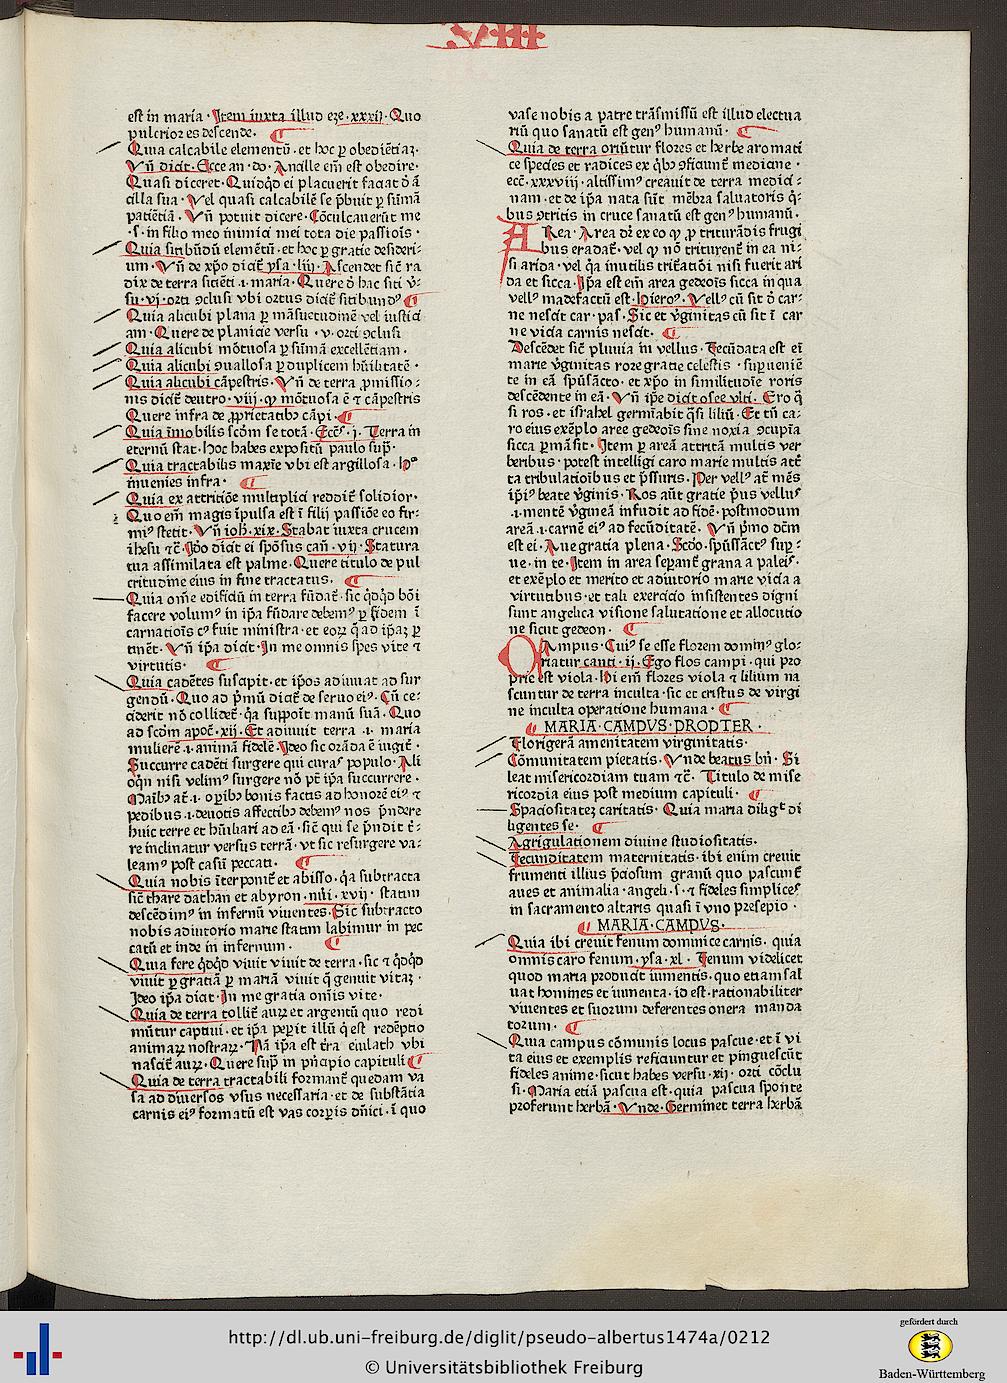 XVIII
est in maria · Item iuxta illud eze · xxxij · Quo
pulcrior es descende ·
Quia calcabile elementū · et hoc ꝑ obediētiaꝫ ·
Vn̄ dicit · Ecce an · do · Ancille em̄ est obedire ·
Quasi diceret · Quidqd̄ ei placuerit faciat ō ā
cilla sua · Vel quasi calcabilē se p̄buit ꝑ sūmā
patiētiā · Vn̄ potuit dicere · Cōculcauerūt me
· s · in filio meo inimici mei tota die passiōis ·
Quia sitibūdū elemētū · et hoc ꝑ gratie desideri-
um · Vn̄ de xp̄o dicit̄ ysa · liij · Ascendet sic̄ ra
dix de terra siciēti · i · maria · Quere ō hac siti v̄-
su · vj · orti ꝯclusi vbi ortus dicit̄ sitibundꝰ
Quia alicubi plana ꝑ māsuetudinē vel iustici
am · Quere de planicie versu · v · orti ꝯclusi
Quia alicubi mōtuosa ꝑ sūmā excellētiam ·
Quia alicubi ꝯuallosa ꝑ duplicem hūilitatē ·
Quia alicubi cāpestris · Vn̄ de terra ꝓmissio-
nis dicit̄ deutro · viij · ꝙ mōtuosa ē ⁊ cāpestris
Quere infra de ꝓprietatibꝫ cāpi ·
Quia īmobilis scd̄m se totā · Ecc̄s · j · Terra in
eternū stat · hoc habes expositū paulo sup̄ ·
Quia tractabilis maxīe vbi est argillosa · hº
inuenies infra ·
Quia ex attritiōe multiplici reddit̄ solidior ·
Quo em̄ magis īpulsa est ī filij passiōe eo fir-
miꝰ stetit · Vn̄ ioh̄ · xix · Stabat iuxta crucem
ihesu ⁊c̄ · Iō dicit ei spōsus can̄ · vij · Statura
tua assimilata est palme · Quere titulo de pul
critudine eius in fine tractatus ·
Quia om̄e edificiū in terra fūdat̄ · sic qd̄qd̄ bōi
facere volumꝰ in ip̄a fūdare debemꝰ ꝑ fidem ī
carnatiōis cꝰ fuit ministra · et eoꝝ q̄ ad ip̄aꝫ ꝑ
tinēt · Vn̄ ip̄a dicit · In me omnis spes vite ⁊
virtutis ·
Quia cadētes suscipit · et ip̄os adiuuat ad sur
gendū · Quo ad p̄mū dicit̄ de seruo eiꝰ · Cū ce-
ciderit nō collidet̄ · q̄a suppoīt manū suā · Quo
ad scd̄m apoc̄ · xij · Et adiuuit terra · i · maria
mulierē · i · animā fidelē · Ideo sic orāda ē iugit̄ ·
Succurre cadēti surgere qui curaſ populo · Ali
oq̄n nisi velimꝰ surgere nō pt̄ ip̄a succurrere ·
Maībꝫ at̄ · i · oꝑibꝫ bonis factis ad honorē eiꝰ ⁊
pedibus · i · deuotis affectibꝫ debemꝰ nos p̄ndere
huic terre et hūiliari ad eā · sic̄ qui se p̄ndit t̄-
re inclinatur versus terrā · vt sic resurgere va-
leamꝰ post casū peccati ·
Quia nobis īterponit̄ et abisso · q̄a subtracta
sic̄ chare dathan et abyron · nūi · xvij · statim
descēdimꝰ in infernū viuentes · Sic subtracto
nobis adiutorio marie statim labimur in pec
catū et inde in infernum ·
Quia fere qd̄qd̄ viuit viuit de terra · sic ⁊ qd̄qd̄
viuit ꝑ gratiā ꝑ mariā viuit q̄ genuit vitaꝫ ·
Ideo ip̄a dicit · In me gratia om̄is vite ·
Quia de terra tollit̄ auꝝ et argentū quo redi
mūtur captiui · et ip̄a peꝑit illū q̄ est redēptio
animaꝝ nostraꝝ · Nā ip̄a est t̄ra euilath vbi
nascit̄ auꝝ · Quere sup̄ in p̄ncipio capituli
Quia de terra tractabili formant̄ quedam va
sa ad diuersos vsus necessaria · et de substātia
carnis eiꝰ formatū est vas corꝑis dn̄ici · ī quo
vase nobis a patre trāsmissū est illud electua
riū quo sanatū est genꝰ humanū ·
Quia de terra oriūtur flores et herbe aromati
ce species et radices ex qb̄ꝫ ꝯficiunt̄ medicine ·
ecc̄ · xxxviij · altissimꝰ creauit de terra medici-
nam · et de ip̄a nata sūt mēbra saluatoris q̄-
bus ꝯtritis in cruce sanatū est genꝰ humanū ·
ARea · Area dr̄ ex eo ꝙ ꝓ triturādis frugi
bus eradat̄ · vel ꝙ nō triturent̄ in ea ni-
si arida · vel q̄a inutilis trit̄atiōi nisi fuerit ari
da et sicca · Ip̄a est em̄ area gedeōis sicca in qua
vellꝰ madefactū est · Hieroꝰ · Vellꝰ cū sit ō car-
ne nescit car · pas · Sic et v̄ginitas cū sit ī car
ne vicia carnis nescit ·
Descēdet sic̄ pluuia in vellus · Fecūdata est ei̅
marie v̄ginitas rore gratie celestis · suꝑueniē
te in eā spūsācto · et xp̄o in similitudīe roris
descēdente in eā · Vn̄ ip̄e dicit osee vlti · Ero q̄
si ros · et israhel germīabit q̄si liliū · Et tū ca-
ro eius exēplo aree gedeōis sine noxia ꝯcupīa
sicca ꝑmāsit · Item ꝑ areā attritā multis ver
beribus · potest intelligi caro marie multis att̄
ta tribulatioībus et p̄ssuris · Per vellꝰ at̄ mēs
ip̄iꝰ beate v̄ginis · Ros aūt gratie p̄us vellus
· i · mentē v̄gineā infudit ad fidē · postmodum
areā · i · carnē eiꝰ ad fecūditatē · Vn̄ p̄mo dcm̄
est ei · Aue gratia plena · Scd̄o · spūssāctꝰ suꝑ-
ue · in te · Item in area seꝑant̄ grana a paleis ·
et exēplo et merito et adiutorio marie vicia a
virtutibus · et tali exercicio insistentes digni
sunt angelica visione salutatione et allocutio
ne sicut gedeon ·
CAmpus · Cuiꝰ se esse florem dominꝰ glo-
riatur canti · ij · Ego flos campi · qui pro
prie est viola · Hi em̄ flores viola ⁊ lilium na
scuntur de terra inculta · sic et cristus de virgi
ne inculta operatione humana ·
MARIA · CAMPVS · PROPTER ·
Florigerā amenitatem virginitatis ·
Cōmunitatem pietatis · Vnde beatus bn̄ · Si
leat misericordiam tuam ⁊c̄ · Titulo de mise
ricordia eius post medium capituli ·
Spaciositateꝫ caritatis · Quia maria diligt̄ di
ligentes se ·
Agrigulationem diuine studiositatis ·
Fecunditatem maternitatis · ibi enim creuit
frumenti illius p̄ciosum granū quo pascunt̄
aues et animalia · angeli · s · ⁊ fideles simplices
in sacramento altaris quasi ī vno presepio ·
MARIA · CAMPVS ·
Quia ibi creuit fenum dominice carnis · quia
omnis caro fenum · ysa · xl · Fenum videlicet
quod maria producit iumentis · quo etiam sal
uat homines et iumenta · id est · rationabiliter
viuentes et suorum deferentes onera manda
torum ·
Quia campus cōmunis locus pascue · et ī vi
ta eius et exemplis reficiuntur et pinguescūt
fideles anime · sicut habes versu · xij · orti cōclu
si · Maria etiā pascua est · quia pascua sponte
proferunt herbā · Vnde · Germinet terra herbā
http://dl.ub.uni-freiburg.de/diglit/pseudo-albertus1474a/0212
© Universitätsbibliothek Freiburg
gefördert durch
Baden-Württemberg